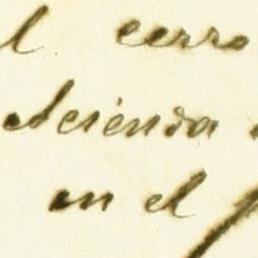 l cerro
Acienda
en el